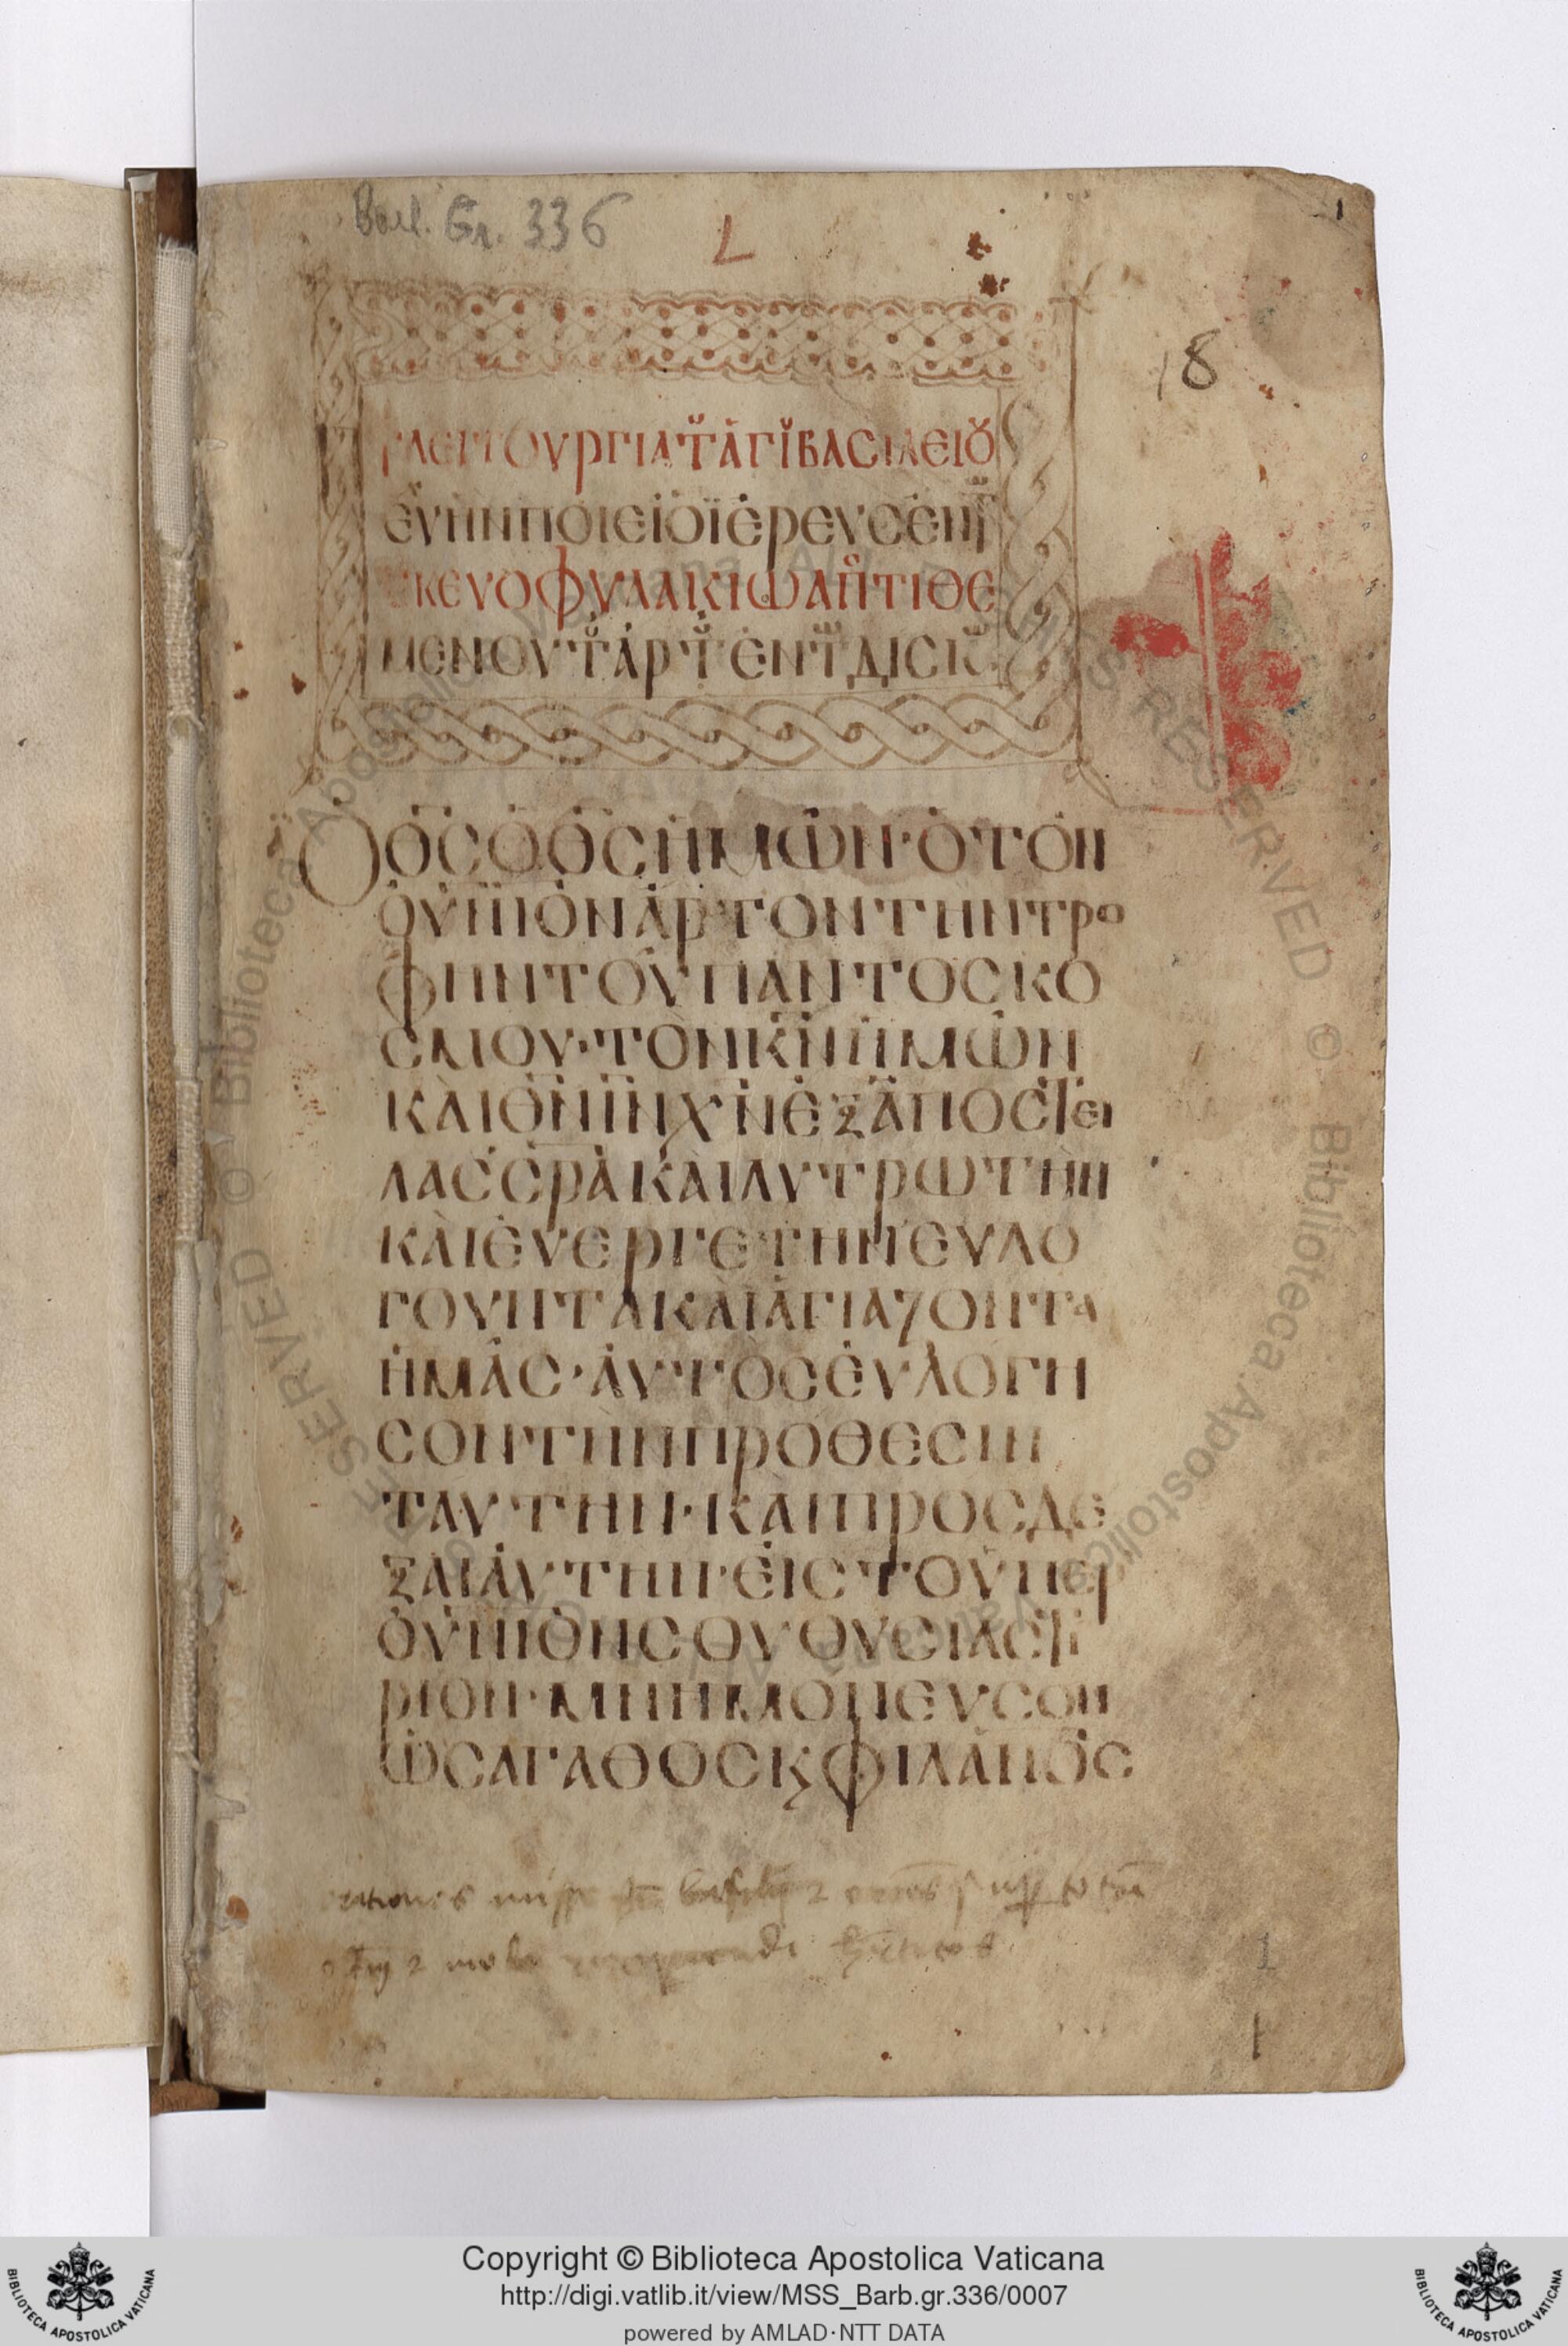 Barb. Gr. 336
L
1
18
ΛΕΙΤΟΥΡΓΙΑ Τ ΑΓΙ ΒΑCΙΛΕΙȣ
ΕΥΗΝ ΠΟΙΕΙ Ο ΪΕΡΕΥC ΕΝ Τ
CΚΕΥΟΦΥΛΑΚΙΩ ΑΠΤΙΘΕ
ΜΕΝΟΥ Τ ΑΡΤ ΕΝ Τ ΔΙCΚ
Ο ΘC Ο ΘC ΗΜΩΝ· Ο ΤΟΝ
ΟΥΝΙΟΝ ΑΡΤΟΝ ΤΗΝ ΤΡΟ
ΦΗΝ ΤΟΥ ΠΑΝΤΟC ΚΟ
CΜΟΥ· ΤΟΝ ΚΝ ΗΜΩΝ
ΚΑΙ ΘΝ ΙΝ ΧΝ ΕΞΑΠΟCΤΕΙ
ΛΑC CΡΑ ΚΑΙ ΛΥΤΡΩΤΗΝ
ΚΑΙ ΕΥΕΡΓΕΤΗΝ ΕΥΛΟ
ΓΟΥΝΤΑ ΚΑΙ ΑΓΙΑΖΟΝΤΑ
ΗΜΑC· ΑΥΤΟC ΕΥΛΟΓΗ
CΟΝ ΤΗΝ ΠΡΟΘΕCΙΝ
ΤΑΥΤΗΝ· ΚΑΙ ΠΡΟCΔΕ
ΞΑΙ ΑΥΤΗΝ· ΕΙC ΤΟ ΥΠΕΡ
ΟΥΝΙΟΝ CΟΥ ΘΥCΙΑCΤΗ
ΡΙΟΝ· ΜΝΗΜΟΝΕΥCΟΝ
ΩC ΑΓΑΘΟC Κ ΦΙΛΑΝΟC
1
1
Copyright © Biblioteca Apostolica Vaticana
http://digi.vatlib.it/view/MSS_Barb.gr.336/0007
powered by AMLAD·NTT DATA
BIBLIOTECA APOSTOLICA VATICANA
BIBLIOTECA APOSTOLICA VATICANA